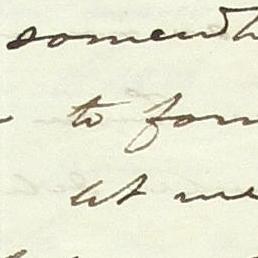 somewh
to form
at me